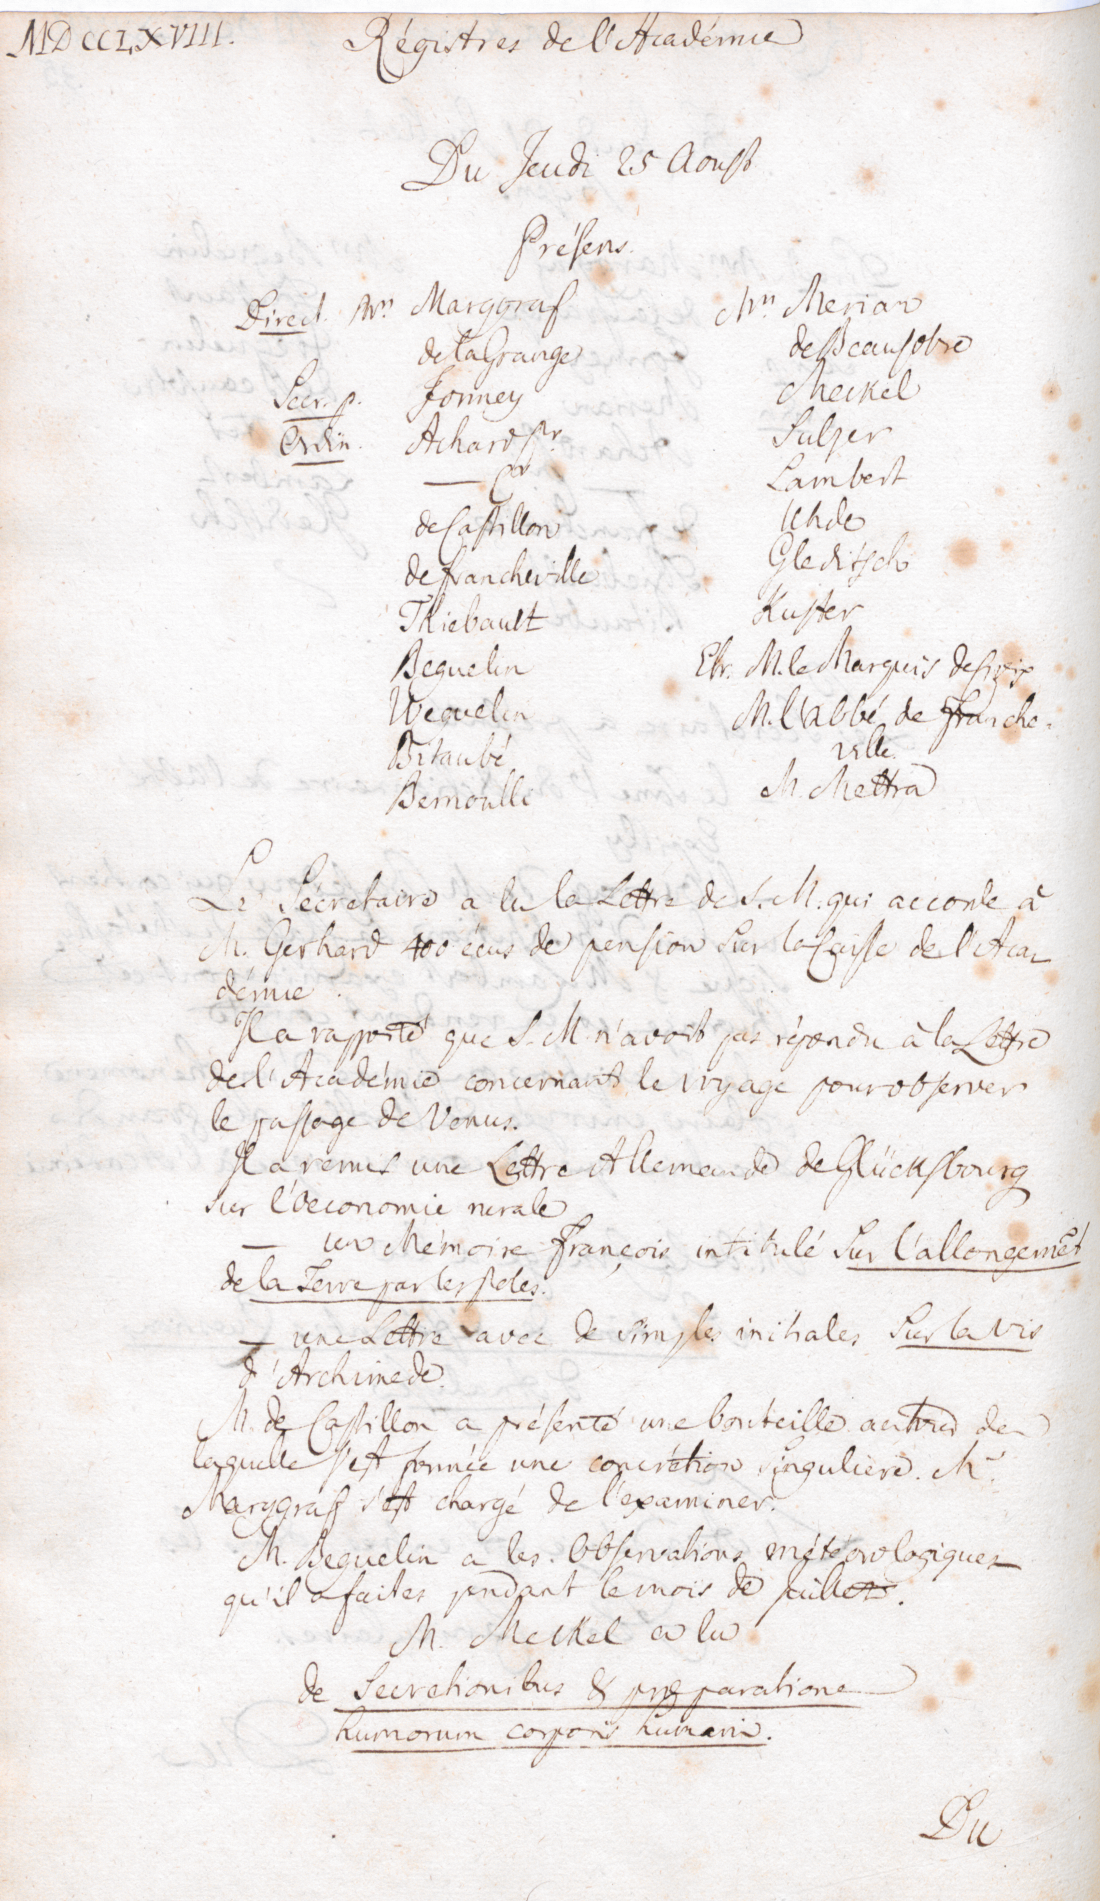 MDCCLXVIII. Régistres de l'Académie
Du Jeudi 25 Aoust
Présens.
Direct. Mrs Marggraf
de la Grange
Secr. p. Formey
Ordin. Achard pr.
—
de Castillon
de Francheville
Thiebault
Beguelin
Weguelin
Bitaubé
Bernoulli
Mrs Merian
de Beausobre
Meckel
Sulzer
Lambert
Uhde
Gleditsch
Kuster
Etr. M. le Marquis de
M. l'Abbé de Franche-
ville.
M. Mettra
Le Sécretaire a lu la Lettre de S. M. qui accorde à
M. Gerhard 400 écus de pension sur la Caisse de l'Aca
démie.
Il a rapporté que S. M. n'avoit pas répondu à la Lettre
de l'Académie concernant le voyage pour observer
le passage de Venus.
Il a remis une Lettre Allemande de Glücksbourg
sur l'oeconomie rurale
— un Mémoire François intitulé Sur l'allongemēt
de la Terre par les Poles.
— une Lettre avec de simples initiales Sur la vis
d'Archimede.
M. de Castillon a présenté une bouteille autour de
laquelle s'est formée une concrétion singuliere. Mr.
Marggraf s'est chargé de l'examiner.
M. Beguelin a les Observations météorologiques
qu'il a faites pendant le mois de Juillet.
M. Meckel a lu
de Secretionibus & præparatione
humorum corporis humani.
Du